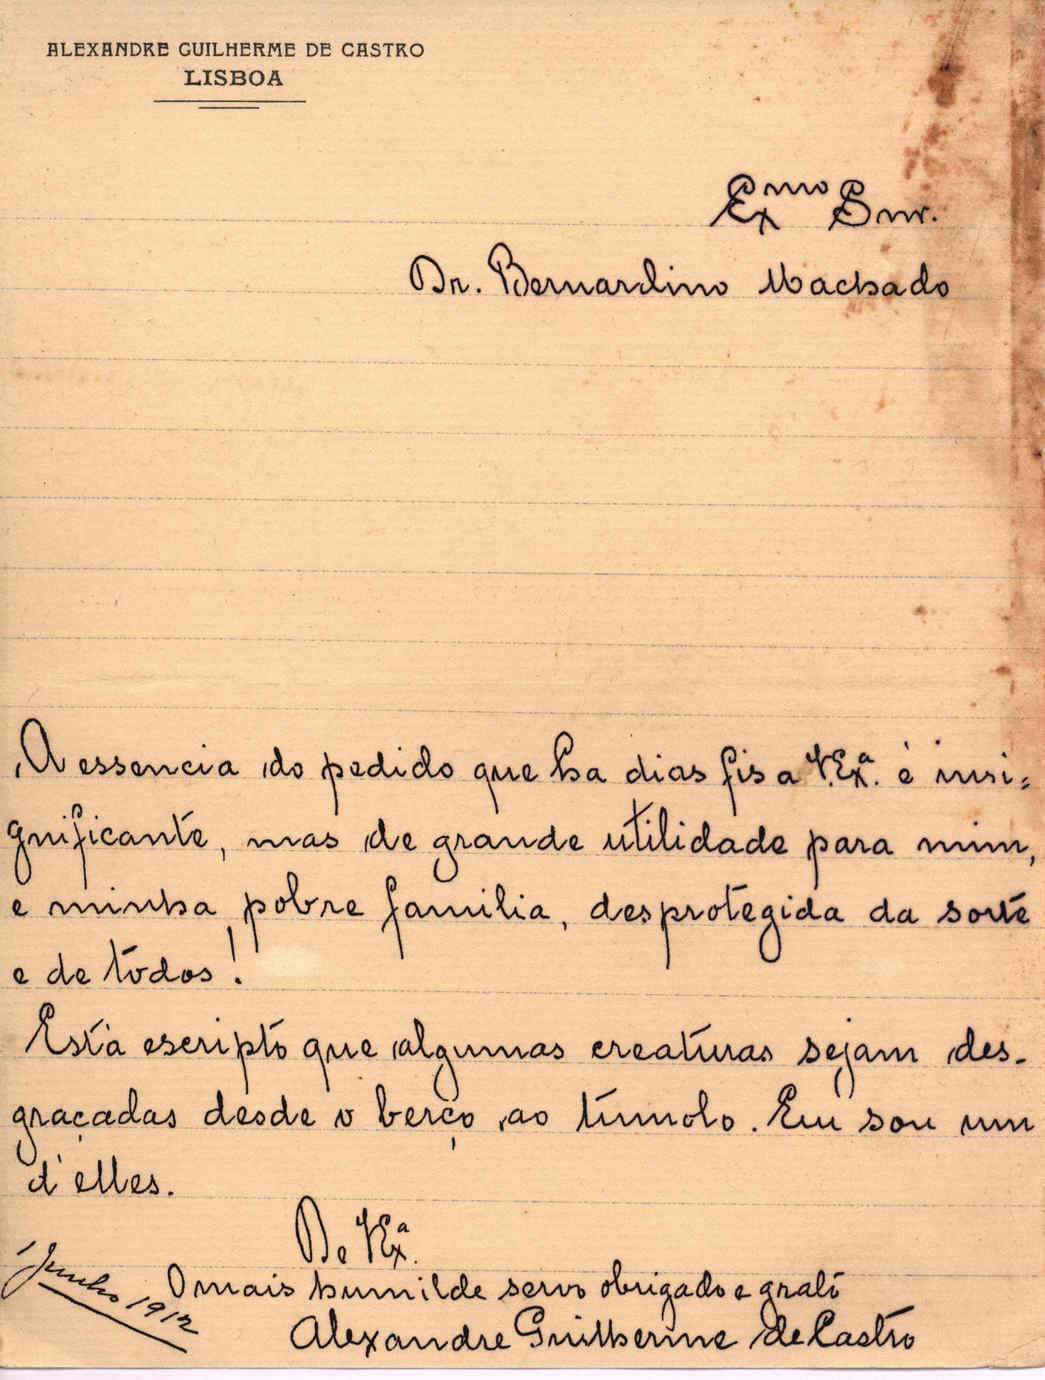 ALEXANDRE GUILHERME DE CASTRO
LISBOA
Exmo Snr.
Dr. Bernardino Machado
A essencia do pedido que ha dias fis a V. Exª. è insi=
gnificante, mas de grande utilidade para mim,
e minha pobre familia, desprotegida da sorte
e de todos!
Està escripto que algumas creaturas sejam des-
graçadas desde o berço ao tumolo. Eu sou um
d'elles.
De V. Exª.
O mais humilde servo obrigado e grato
Alexandre Guilherme de Castro
1 Junho 1912